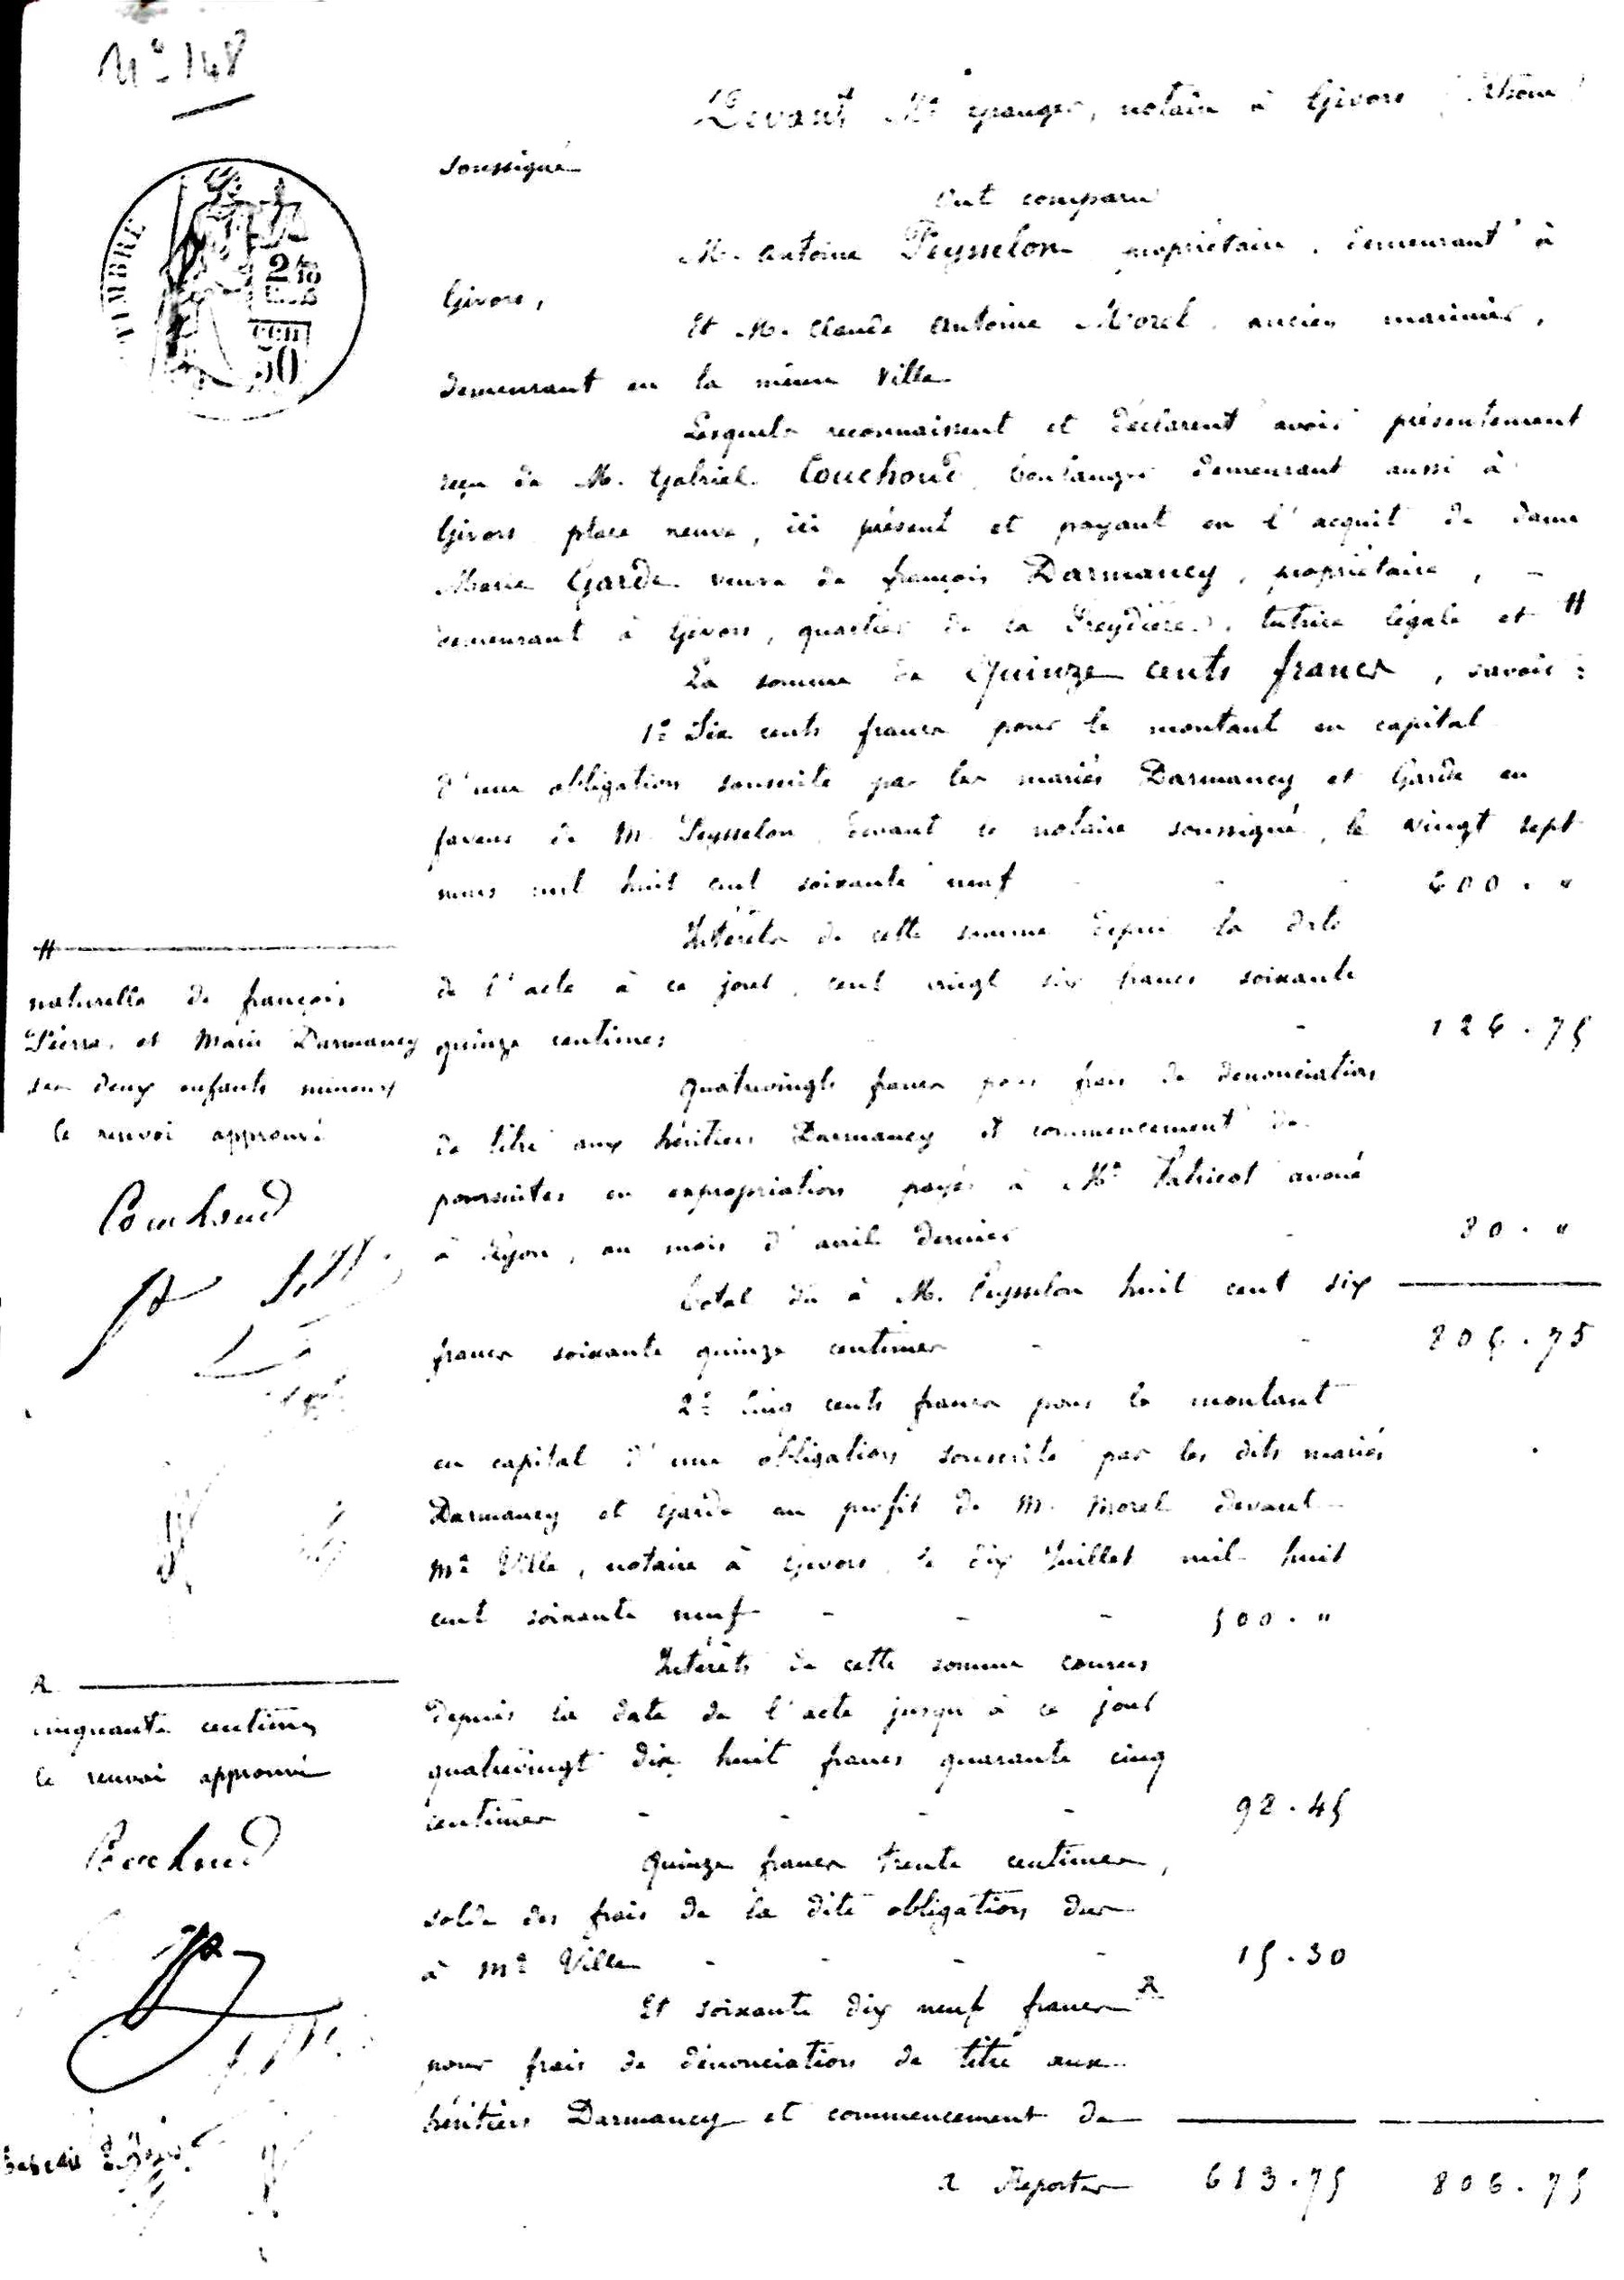 N° 148
Devant Me Granger, notaire à Givors (Rhône)
soussigné
Ont comparu
M. Antoine Peysselon propriétaire, demeurant à
Givors,
Et M. Claude Antoine Morel, ancien marinier,
demeurant en la même Ville
Lesquels reconnaissent et déclarent avoir présentement
reçu de M. Gabriel Couchoud boulanger demeurant aussi à
Givors place neuve, ici présent et payant en l'acquit de dame
Marie Garde veuve de françois Darmancy, propriétaire,
demeurant à Givors, quartier de la Freydière, tutrice légale et #
La somme de Quinze cents francs, savoir :
1° Six cents francs pour le montant en capital
d'une obligation souscrite par les mariés Darmancy et Garde en
faveur de M. Peysselon devant le notaire soussigné, le vingt sept
mars mil huit cent soixante neuf 600. "
Intérêts de cette somme depuis la date
de l'acte à ce jour, cent vingt six francs soixante
quinze centimes 126.75
quatrevingts francs pour frais de dénonciation
de titre aux héritiers Darmancy et commencement de
poursuites en expropriation payés à Me avoué
à Lyon, au mois d'avril dernier 80. "
total dû à M. Peysselon huit cent six
francs soixante quinze centimes 806.75
2° Cinq cents francs pour le montant
en capital d'une obligation souscrite par les dits mariés
Darmancy et Garde au profit de M. Morel devant
Me Ville, notaire à Givors le dix Juillet mil huit
cent soixante neuf 500. "
Intérêts de cette somme courus
depuis la date de l'acte jusqu'à ce jour
quatrevingt dix huit francs quarante cinq
centimes 98.45
Quinze francs trente centimes,
solde des frais de la dite obligation dus
à Me Ville 15.30
Et soixante dix neuf francs A
pour frais de dénonciation de titre aux
héritiers Darmancy et commencement de
A Reporter 613.75 806.75
#
naturelle de françois
Pierre et Marie Darmancy
ses deux enfants mineurs
le renvoi approuvé
Couchoud
A
cinquante centimes
le renvoi approuvé
Couchoud
TIMBRE
50